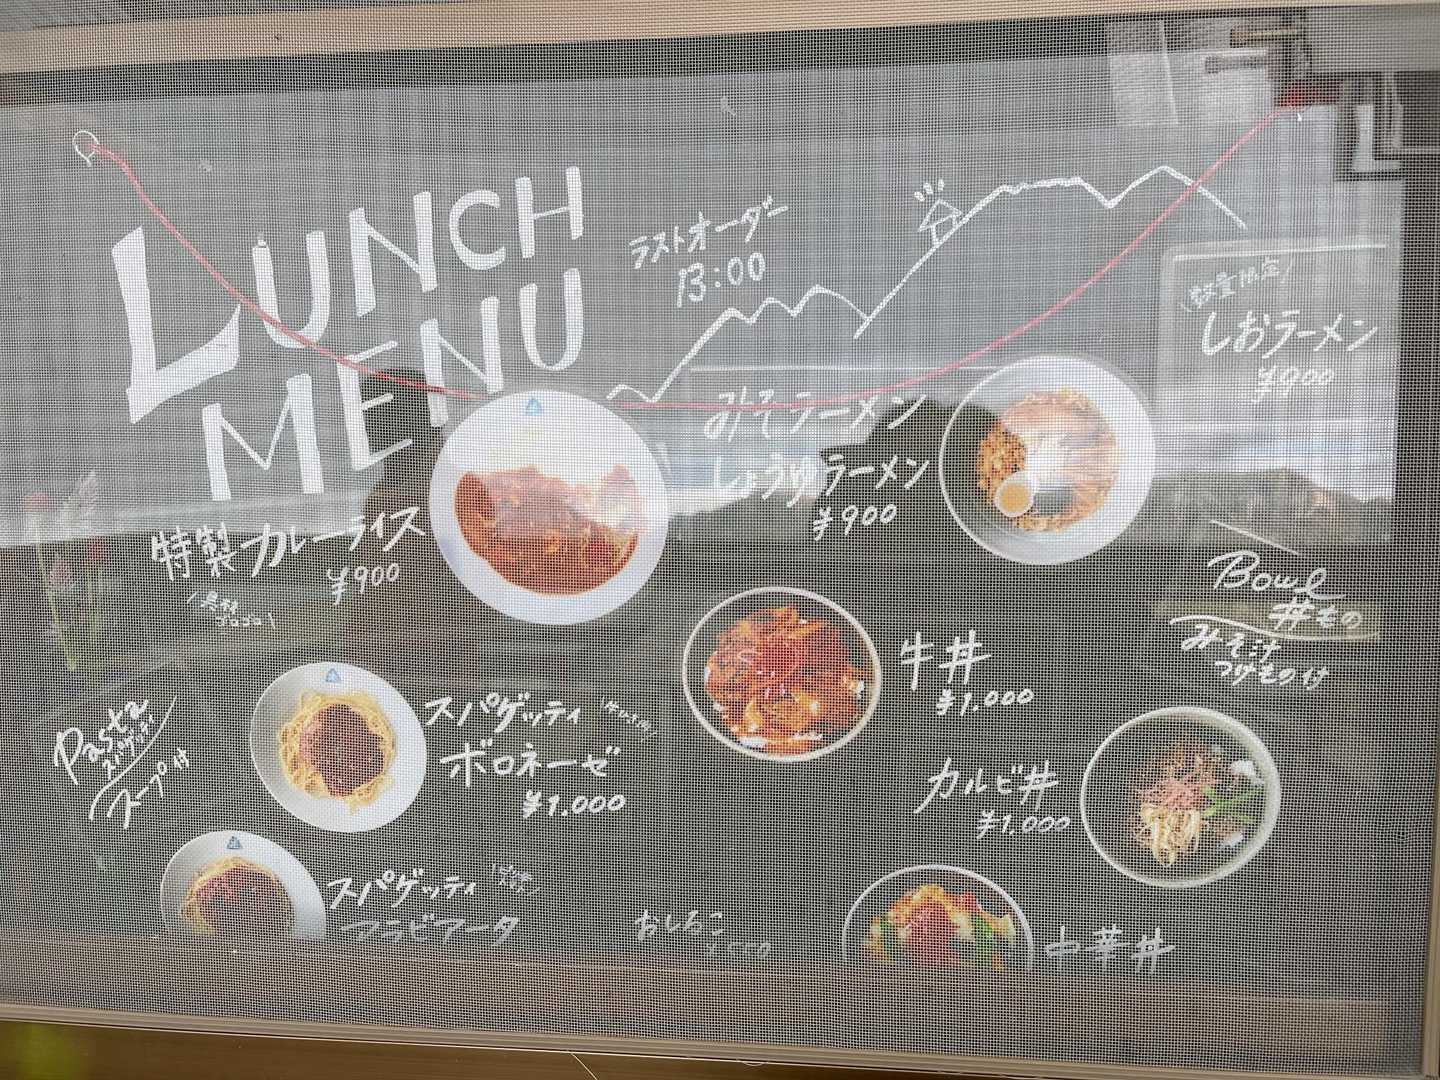 LUNCH
MENU
ラストオーダー
13:00
数量限定
しおラーメン
¥900
みそラーメン
しょうゆラーメン
¥900
特製カレーライス
¥900
具材
ゴロゴロ
Bowl
丼もの
みそ汁
つけもの付
牛丼
¥1,000
Pasta
スパゲッティ
スープ付
スパゲッティ
ボロネーゼ
¥1,000
カルビ丼
¥1,000
スパゲッティ
アラビアータ
おしるこ
中華丼